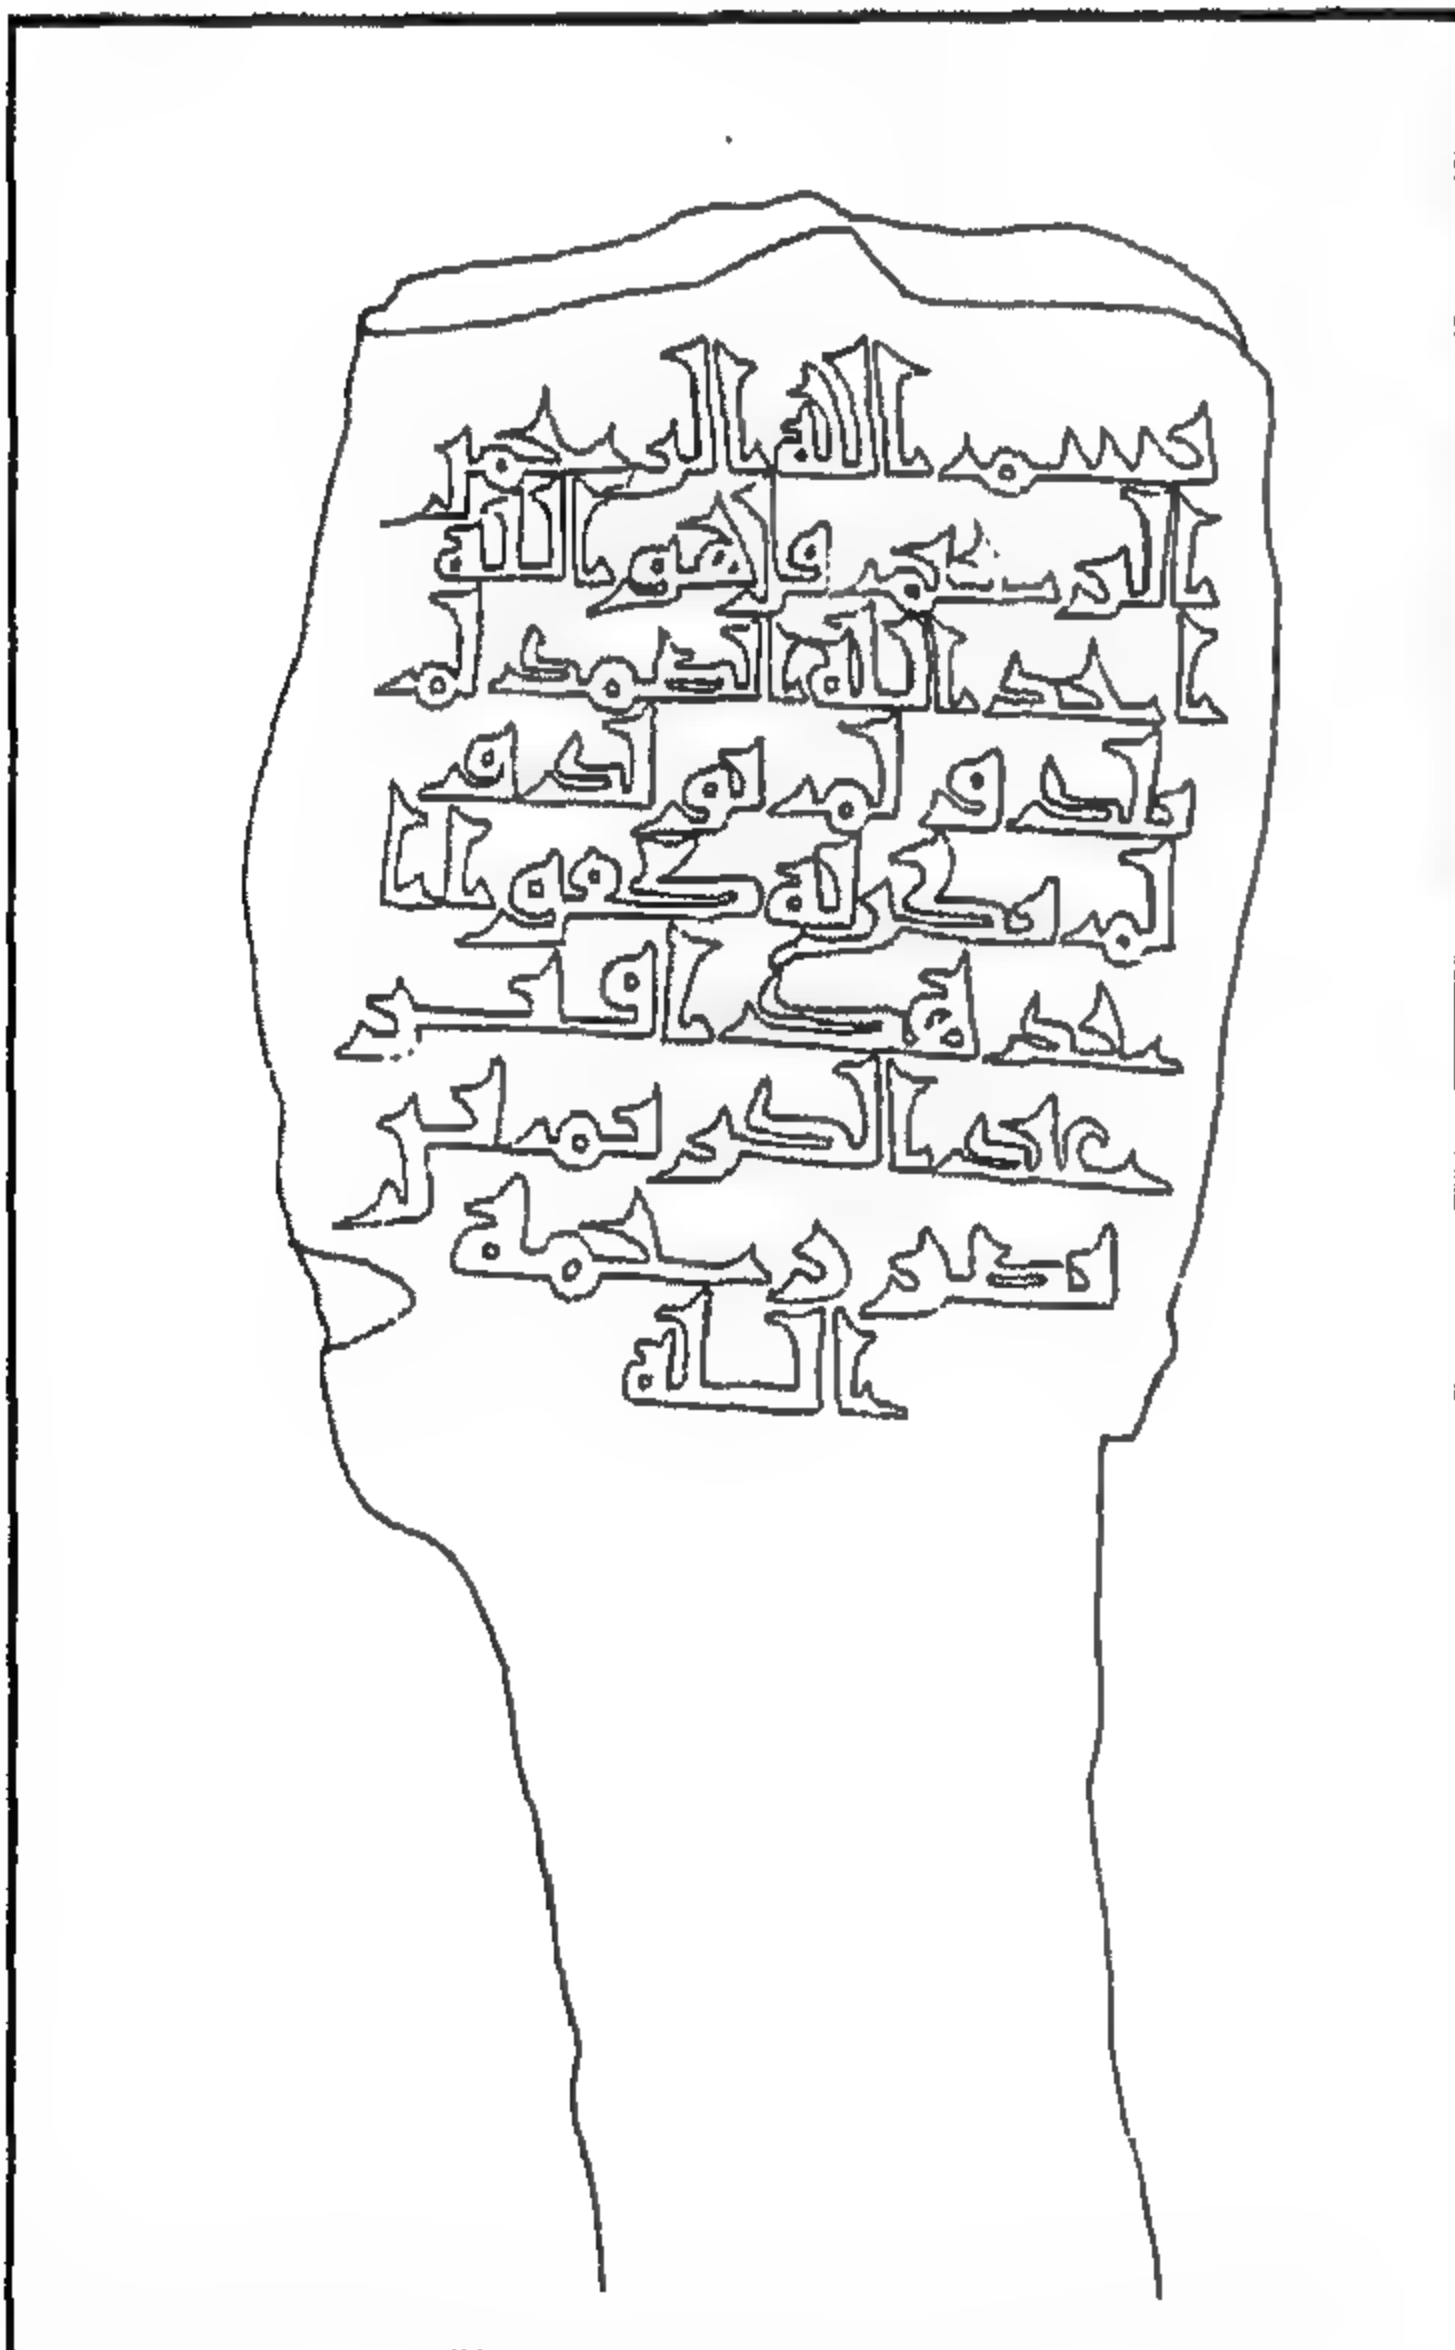 بسم الله الرحمن
الرحيم قل هو الله
احد الله الصمد لم
يلد و لم يولد و
لم يكن له كفوا ا
حد هذا قبر
عبد الكريم بن
نصر رحمه
الله